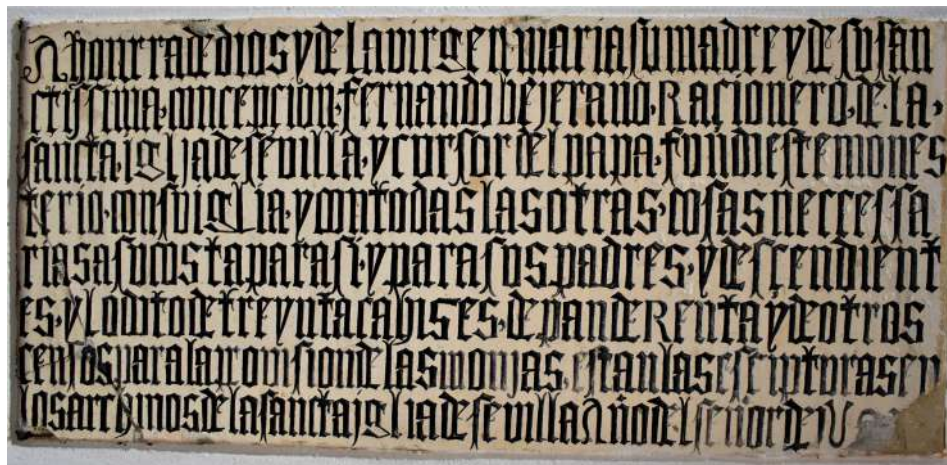 A honrra de dios y de la virgen maria su madre y de su san
ctissima concepcion fernando bejerano Racionero de la
sancta iglia de sevilla y cursor del papa fundo este mones
terio con su iglia y con todas las otras cosas neccessa
rias a su costa para si y para sus padres y descendient
es y lo doto de treynta cahises de pan de Renta y de otros
censos para la provision de las monjas estan las escripturas en
los archivos de la sancta iglia de sevilla Año del señor de